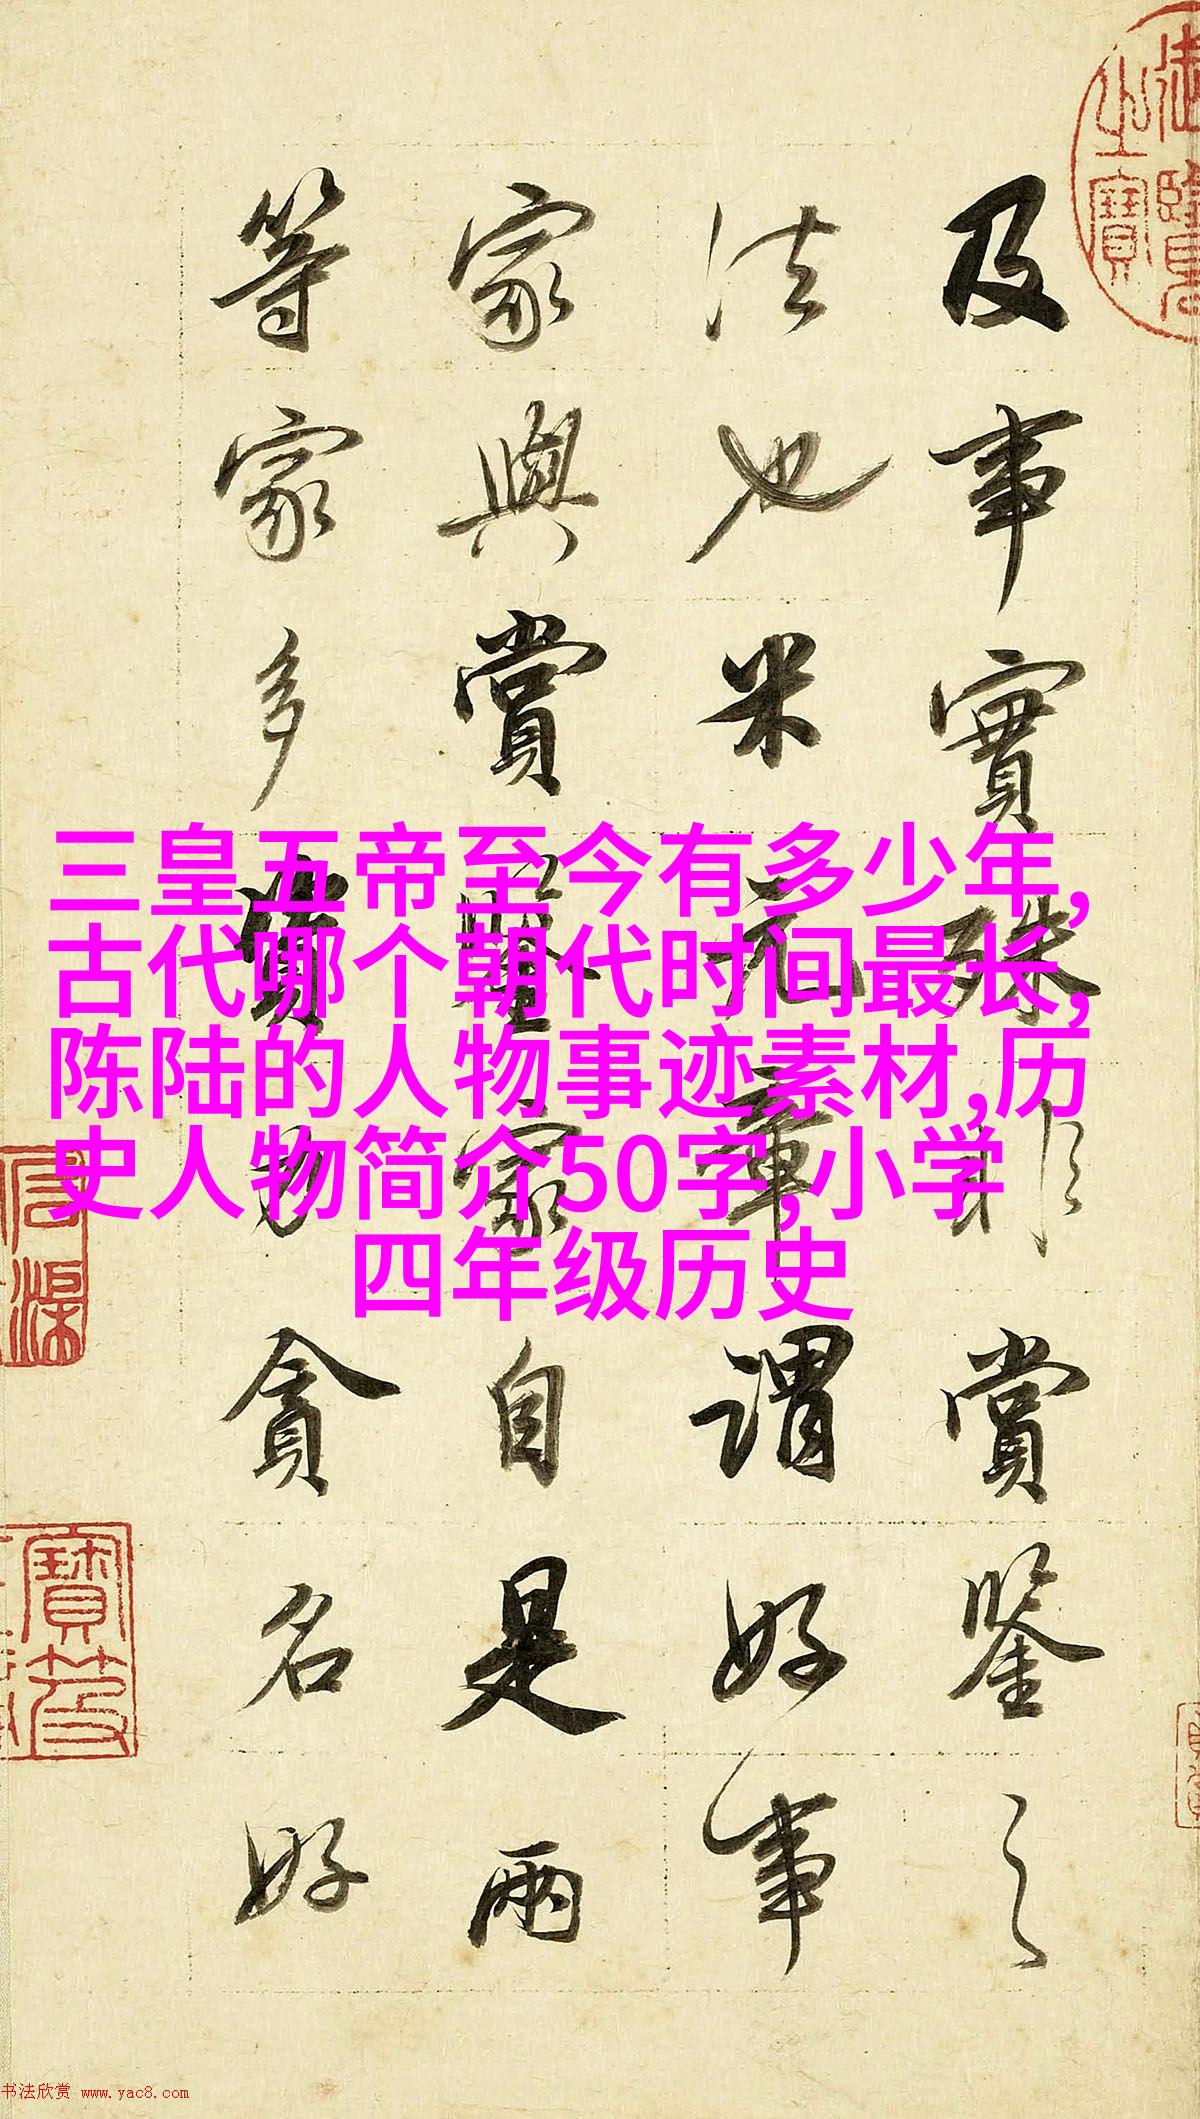 三皇五帝至今有多少年,
古代哪个朝代时间最长,
陈陆的人物事迹素材,历
史人物简介50字,小学
四年级历史
及事實殊賞鑒之
法也米元章謂好事
家與賞鑒家自是兩
等家多資力貪名好
御覽之寶
书法欣赏 www.yac8.com